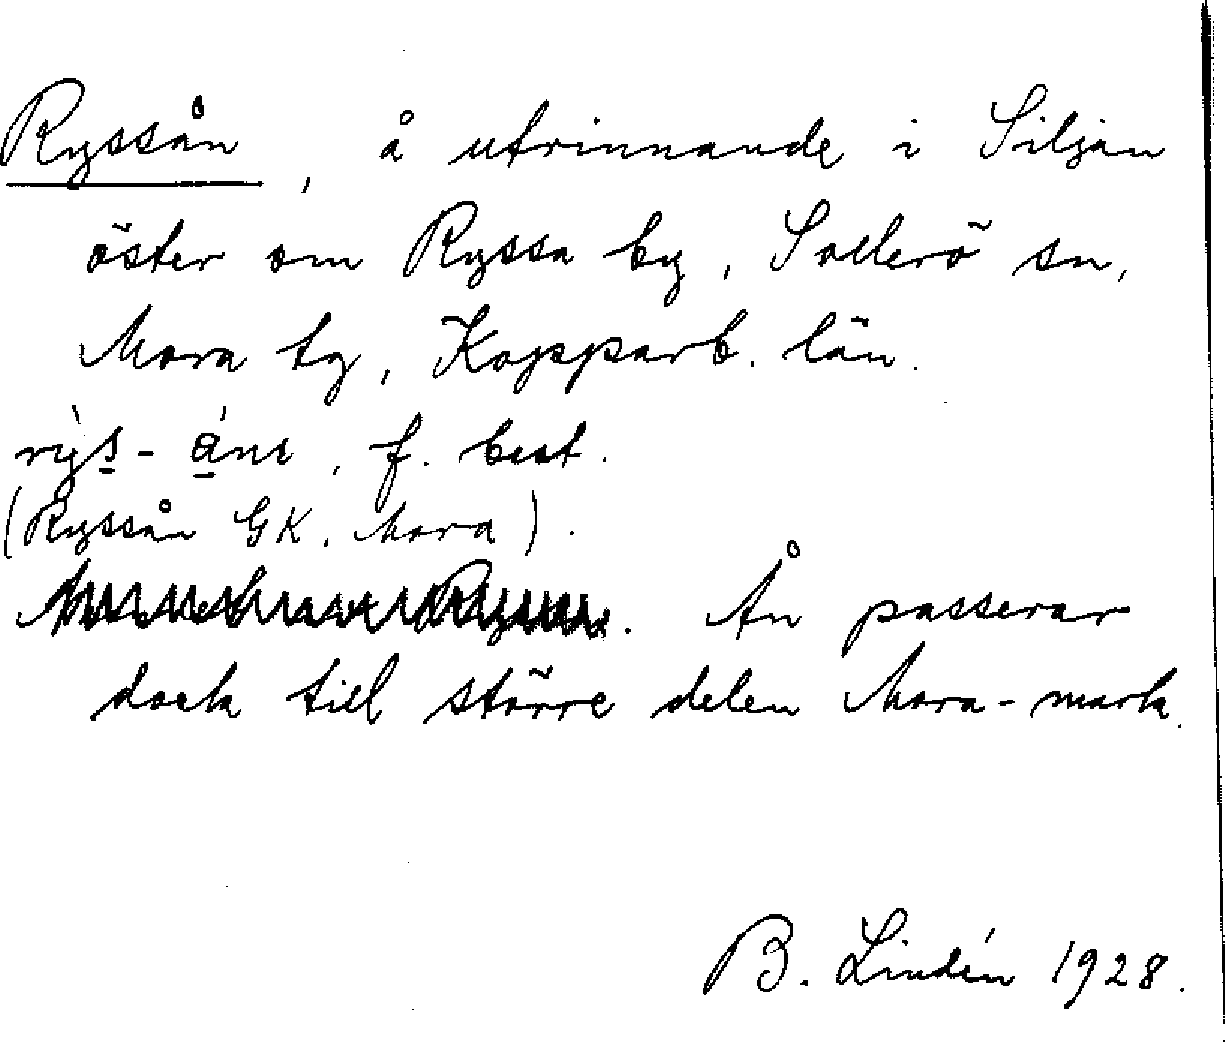 Ryssån, å utrinnande i Siljan
öster om Ryssa by, Sollerö sn,
Mora tg, Kopparb. län.
rỳs̠-á̠nɪ, f. best.
(Ryssån GK, Mora).
Ån passerar
dock till större delen Mora-mark.
B. Lindén 1928.